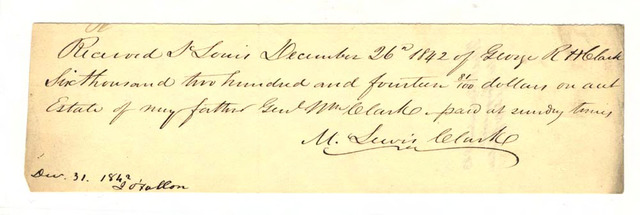 Received St Louis December 26th 1842 of George R H Clark
Six thousand two hundred and fourteen 81/100 dollars on act
Estate of my father Genl Wm Clark - paid at sundry times
M. Lewis Clark
Dec. 31. 1842
J O'Fallon